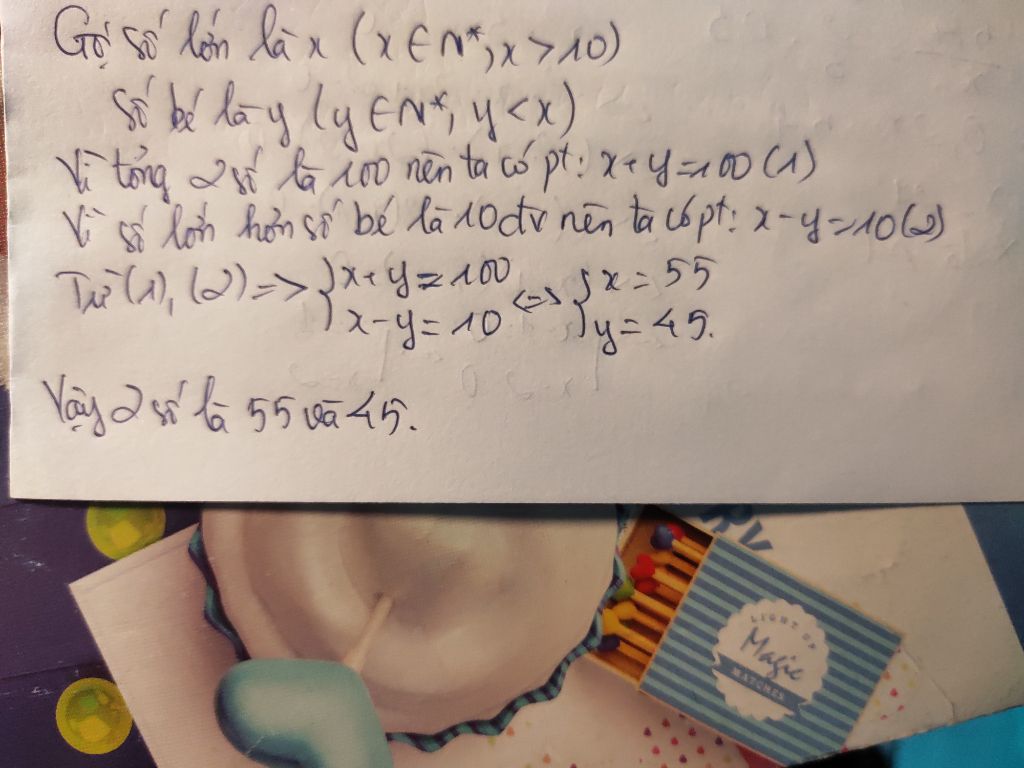 Gọi số lớn là x (x ∈ N*, x > 10)
số bé là y (y ∈ N*, y < x)
Vì tổng 2 số là 100 nên ta có pt: x + y = 100 (1)
Vì số lớn hơn số bé là 10đv nên ta có pt: x - y = 10 (2)
Từ (1), (2) => { x + y = 100 <=> { x = 55
x - y = 10 y = 45.
Vậy 2 số là 55 và 45.
RV
LIGHT UP
Magic
MATCHES